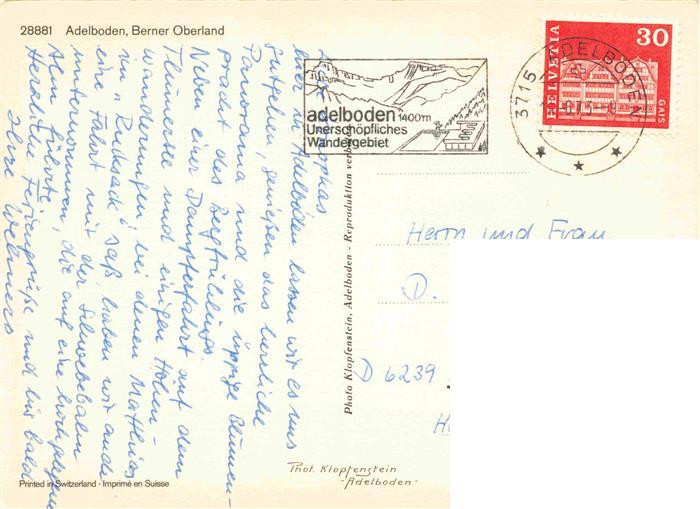 28881 Adelboden, Berner Oberland
adelboden 1400m
Unerschöpfliches
Wandergebiet
3715 ADELBODEN
HELVETIA
30
GAIS
Adelboden lassen wir es uns
gutgehen, genießen das herrliche
Panorama und die üppige Blumen-
pracht des Bergfrühlings.
Neben einer Dampferfahrt auf dem
Thunersee und einigen Höhen-
wanderungen, bei denen Matthias
im Rucksack saß, haben wir auch
eine Fahrt mit der Schwebebahn
unternommen, die auf eine hochgelegene
Alm führte.
Herzliche Feriengrüße und bis bald
Ihre
Photo Klopfenstein, Adelboden - Reproduktion verboten
Herrn und Frau
D.
D 6239
H
Phot. Klopfenstein
-Adelboden-
Printed in Switzerland - Imprimé en Suisse